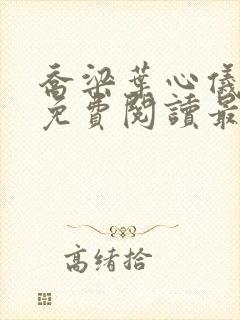 喬梁葉心儀
免費閱讀最
高绪拾